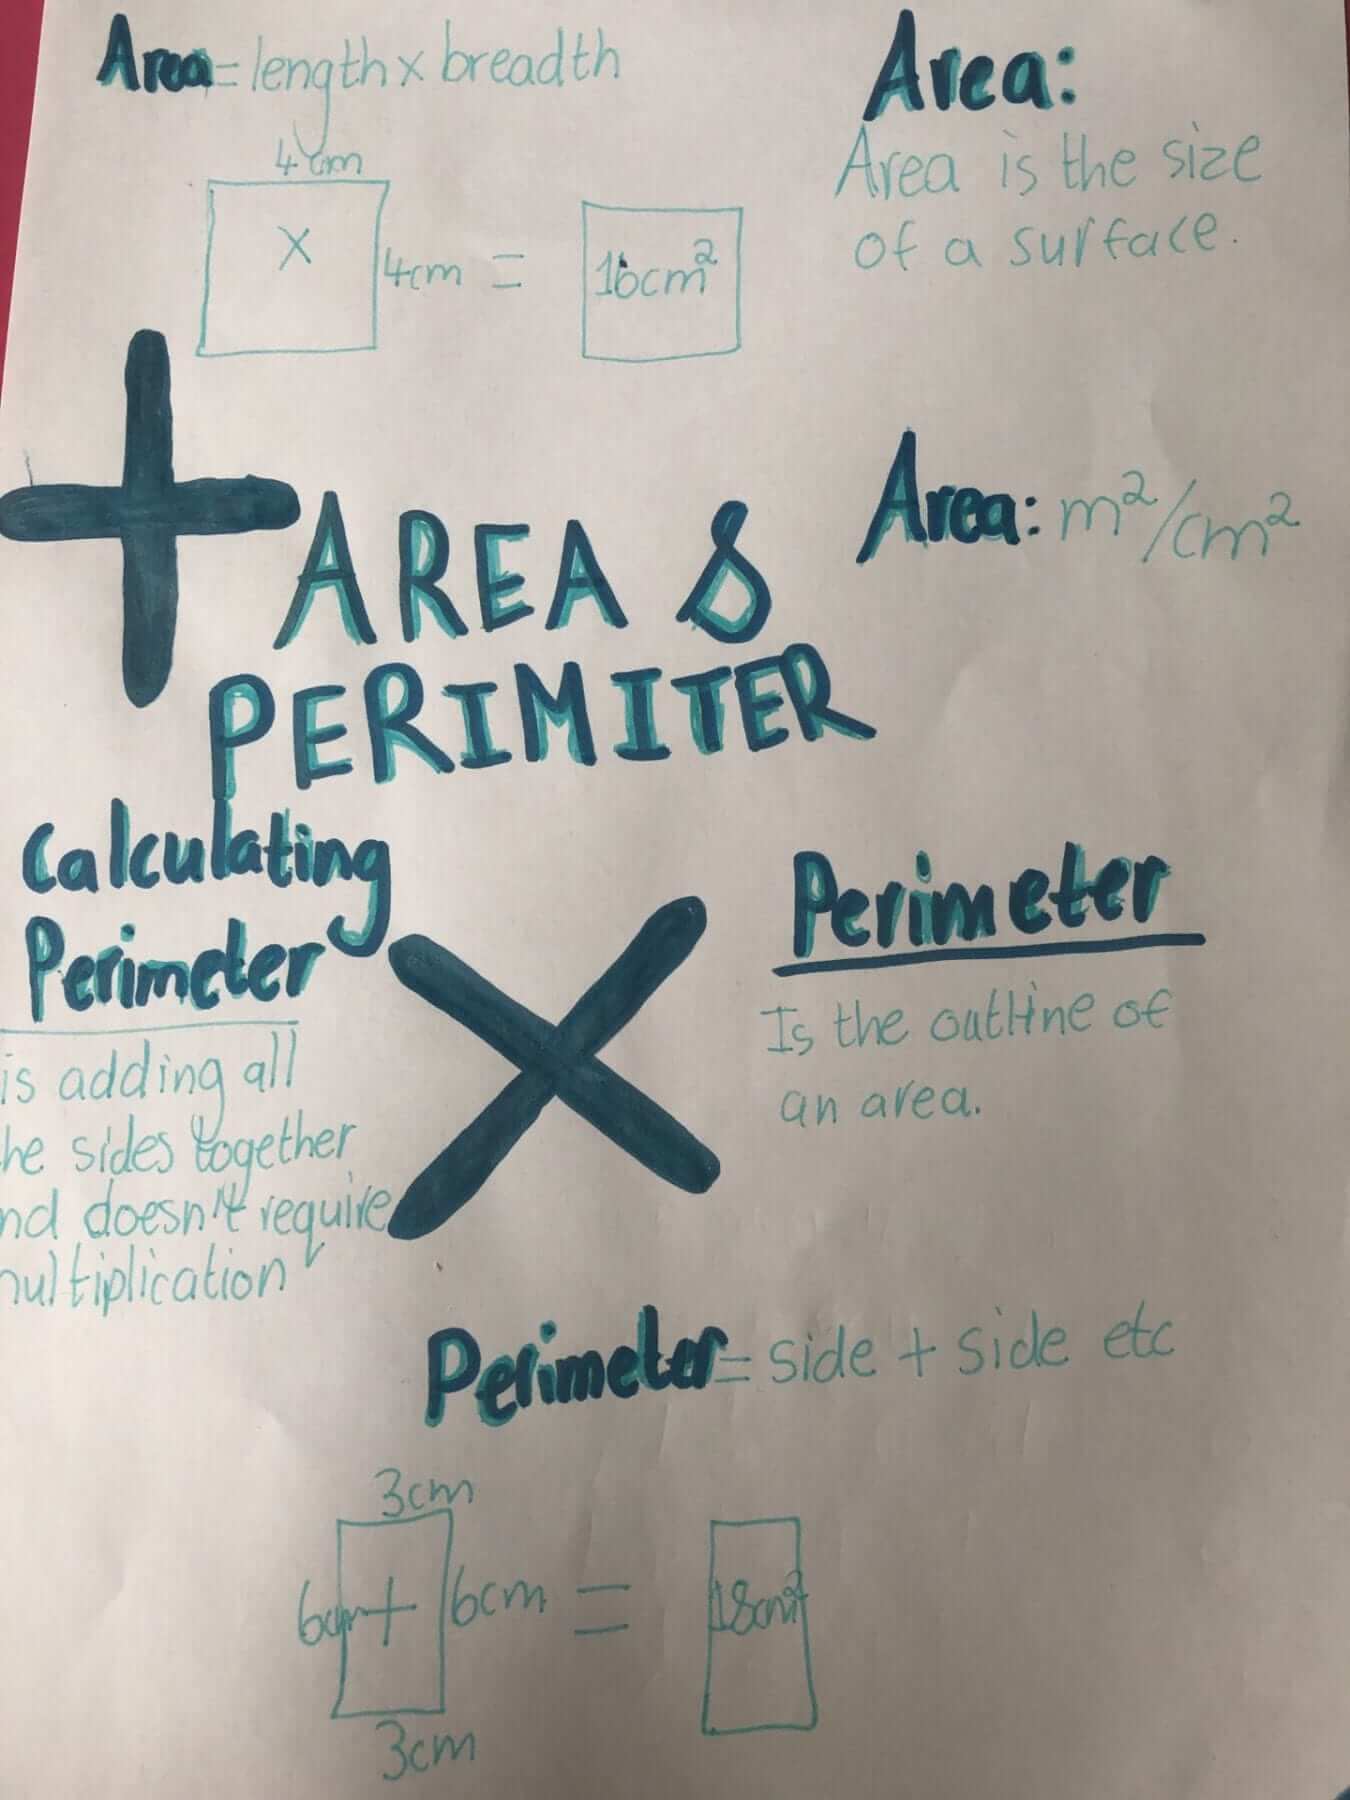 Area = length x breadth
4cm
X
4cm = 16cm²
Area:
Area is the size
of a surface.
+
AREA &
PERIMITER
Area: m²/cm²
Calculating
Perimeter
is adding all
he sides together
nd doesn't require
ultiplication
X
Perimeter
Is the outline of
an area.
Perimeter = side + side etc
3cm
6cm + 6cm = 18cm²
3cm